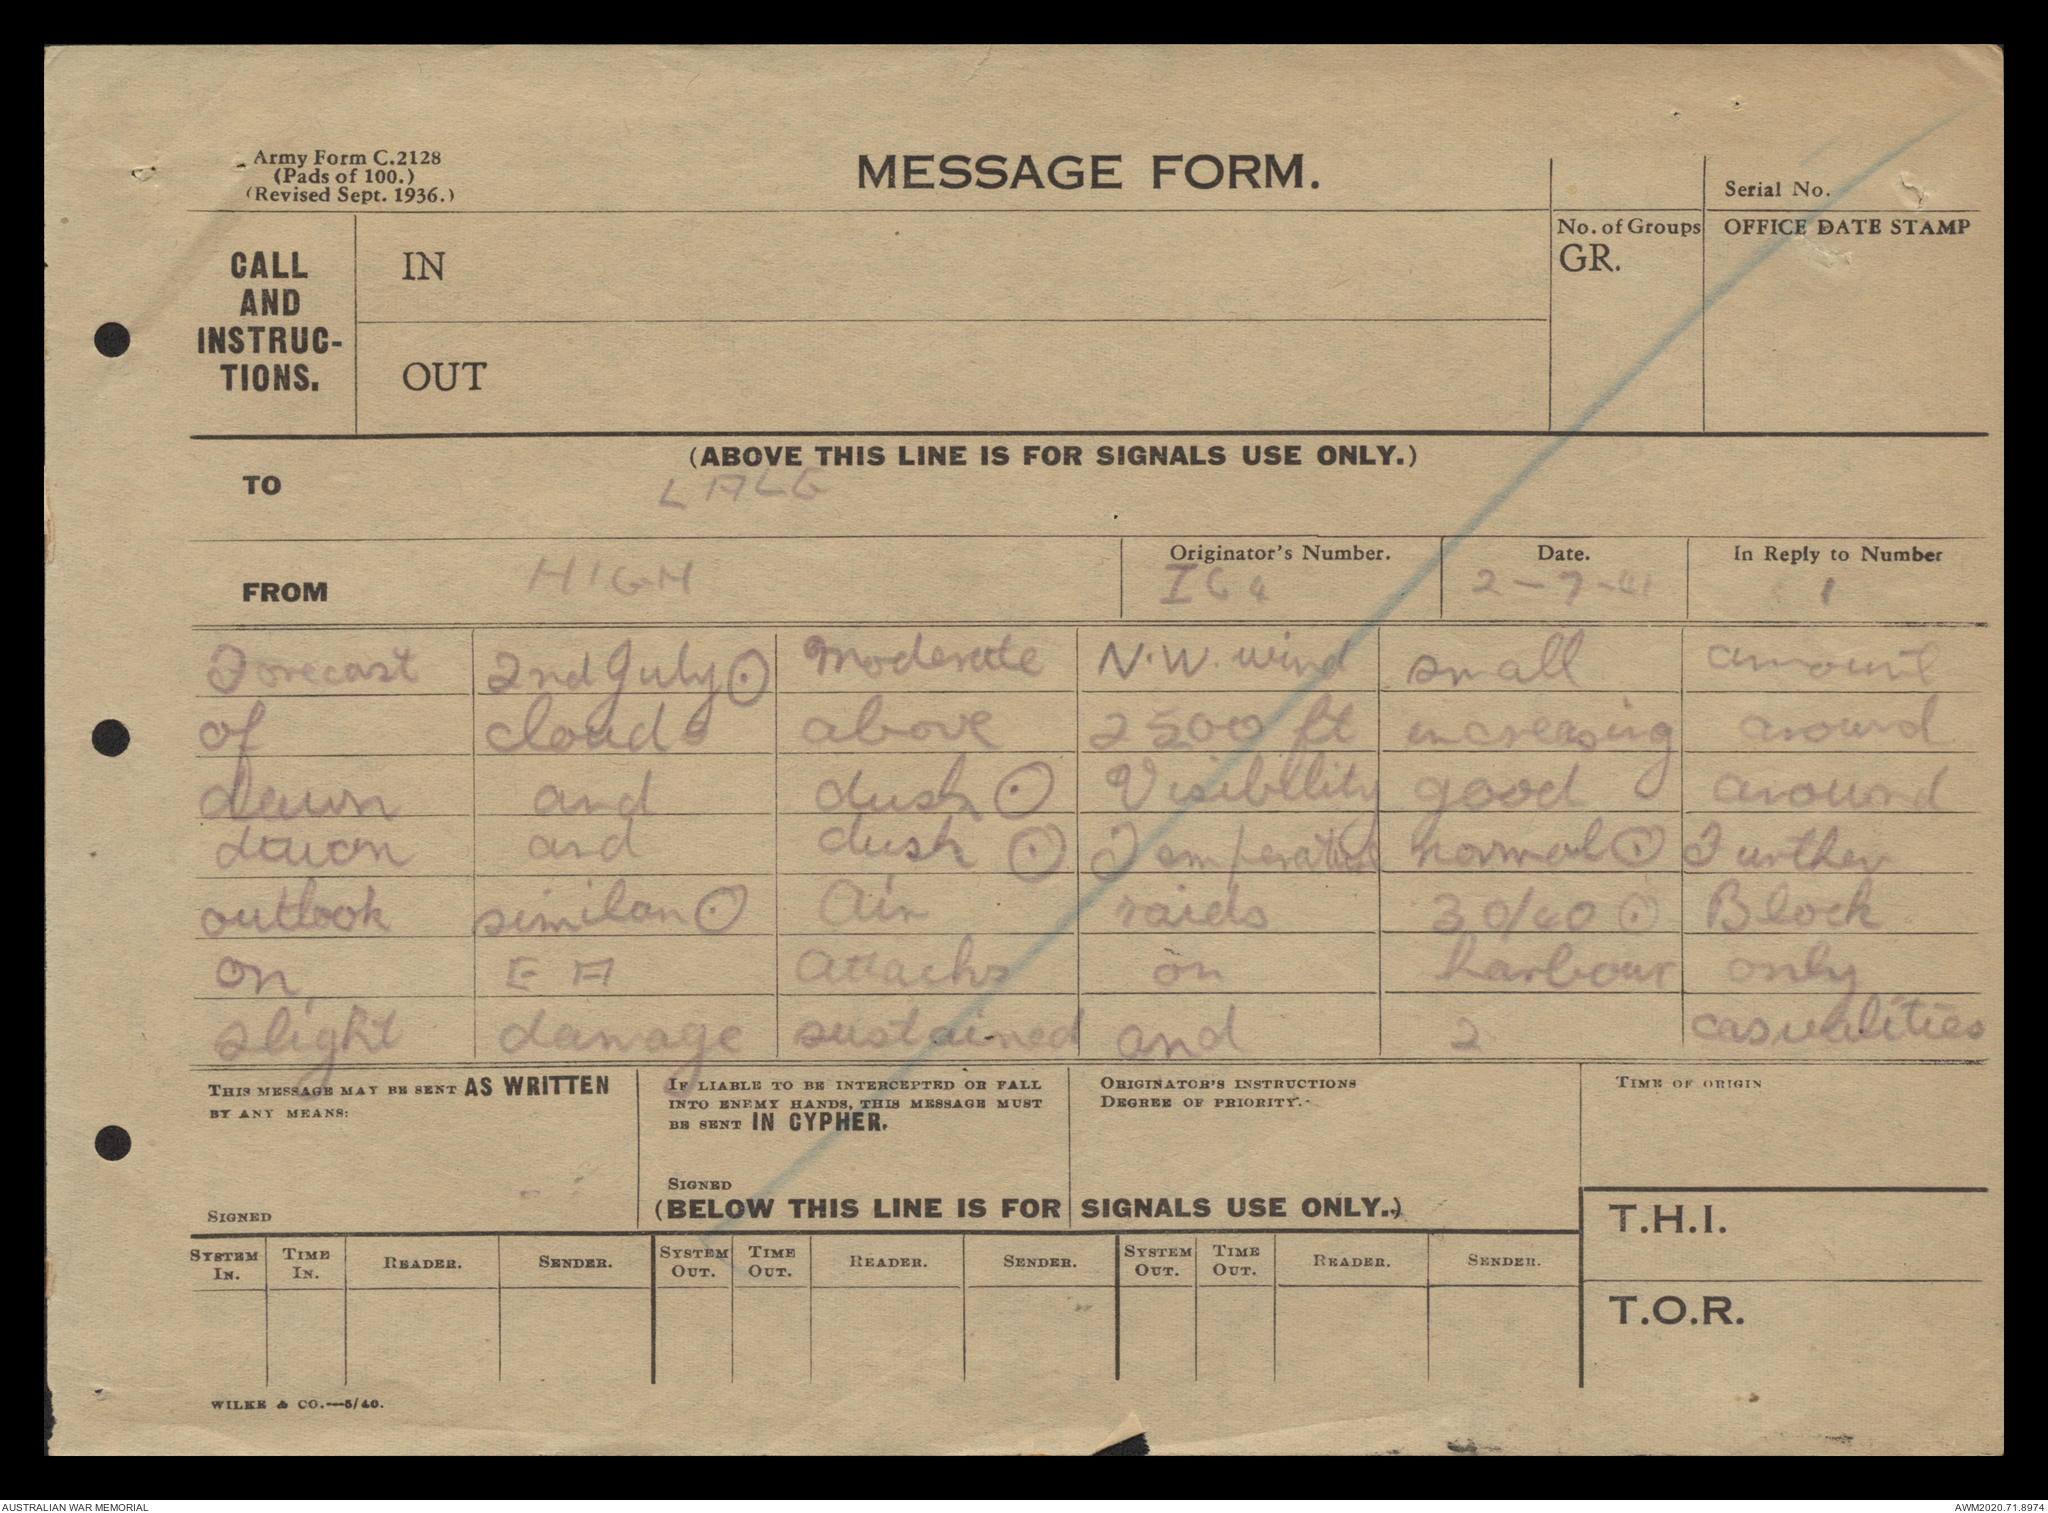 Army Form C.2128
(Pads of 100.)
(Revised Sept. 1936.)
MESSAGE FORM.
Serial No.
CALL AND INSTRUC- TIONS.
IN
OUT
No. of Groups
GR.
OFFICE DATE STAMP
(ABOVE THIS LINE IS FOR SIGNALS USE ONLY.)
TO
FROM HIGH
Originator's Number.
Date.
2-7-41
In Reply to Number
Forecast 2nd July ⊙ Moderate N.W. wind small amount
of clouds above 2500 ft increasing around
dawn and dusk ⊙ Visibility good around
dawn and dusk ⊙ Temperature normal ⊙ Further
outlook similar ⊙ Air raids 30/40 ⊙ Block
on EA attacks on harbour only
slight damage sustained and 2 casualities
THIS MESSAGE MAY BE SENT AS WRITTEN
BY ANY MEANS:
SIGNED
IF LIABLE TO BE INTERCEPTED OR FALL
INTO ENEMY HANDS, THIS MESSAGE MUST
BE SENT IN CYPHER.
SIGNED
ORIGINATOR'S INSTRUCTIONS
DEGREE OF PRIORITY.
TIME OF ORIGIN
(BELOW THIS LINE IS FOR SIGNALS USE ONLY.)
T.H.I.
SYSTEM IN. TIME IN. READER. SENDER. SYSTEM OUT. TIME OUT. READER. SENDER. SYSTEM OUT. TIME OUT. READER. SENDER.
T.O.R.
WILKE & CO.—5/40.
AUSTRALIAN WAR MEMORIAL
AWM2020.71.8974